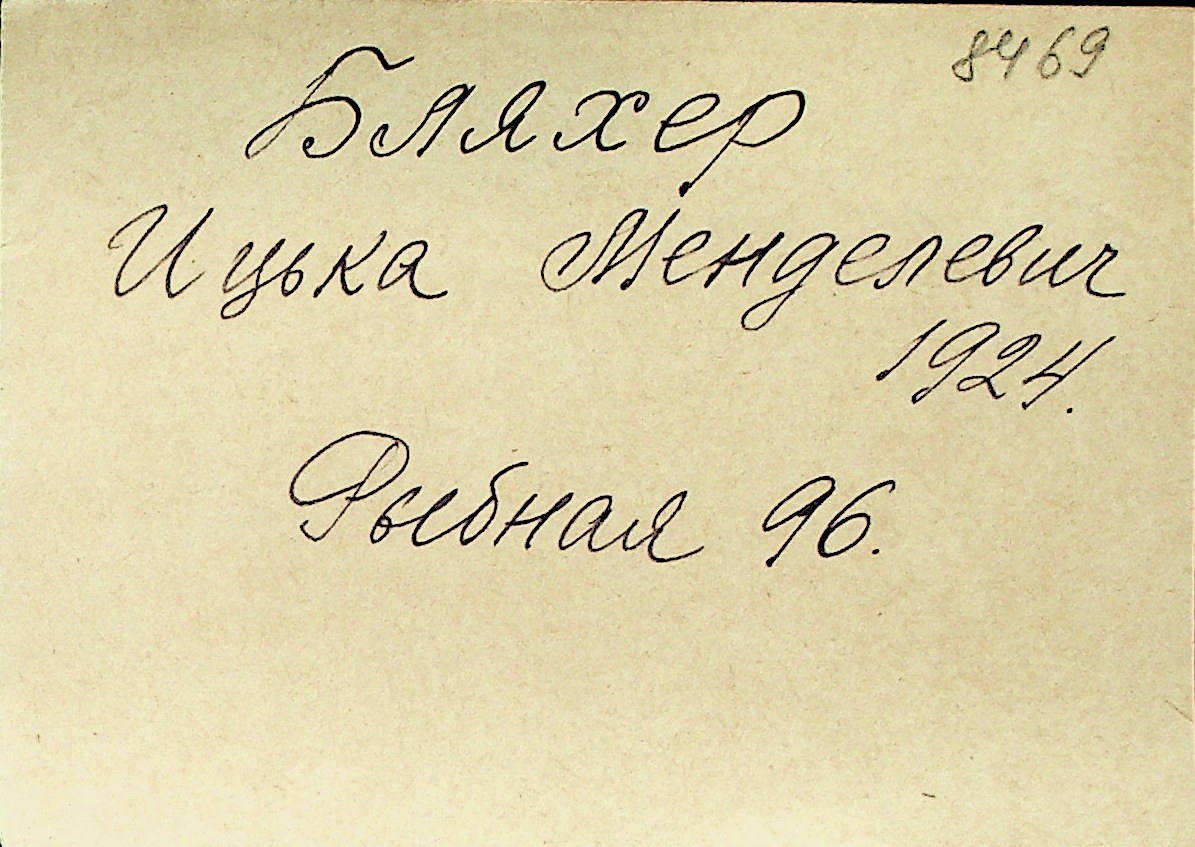 8469
Бляхер
Ицька Менделевич
1924.
Рыбная 96.